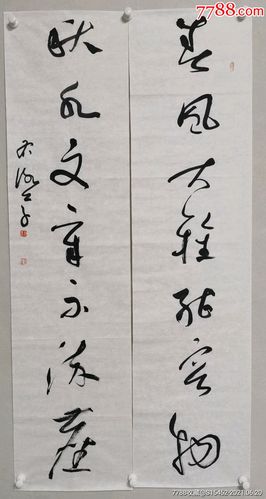 7788.com
春风大雅能容物
秋水文章不染尘
7788收藏@S15452·2021.06.20